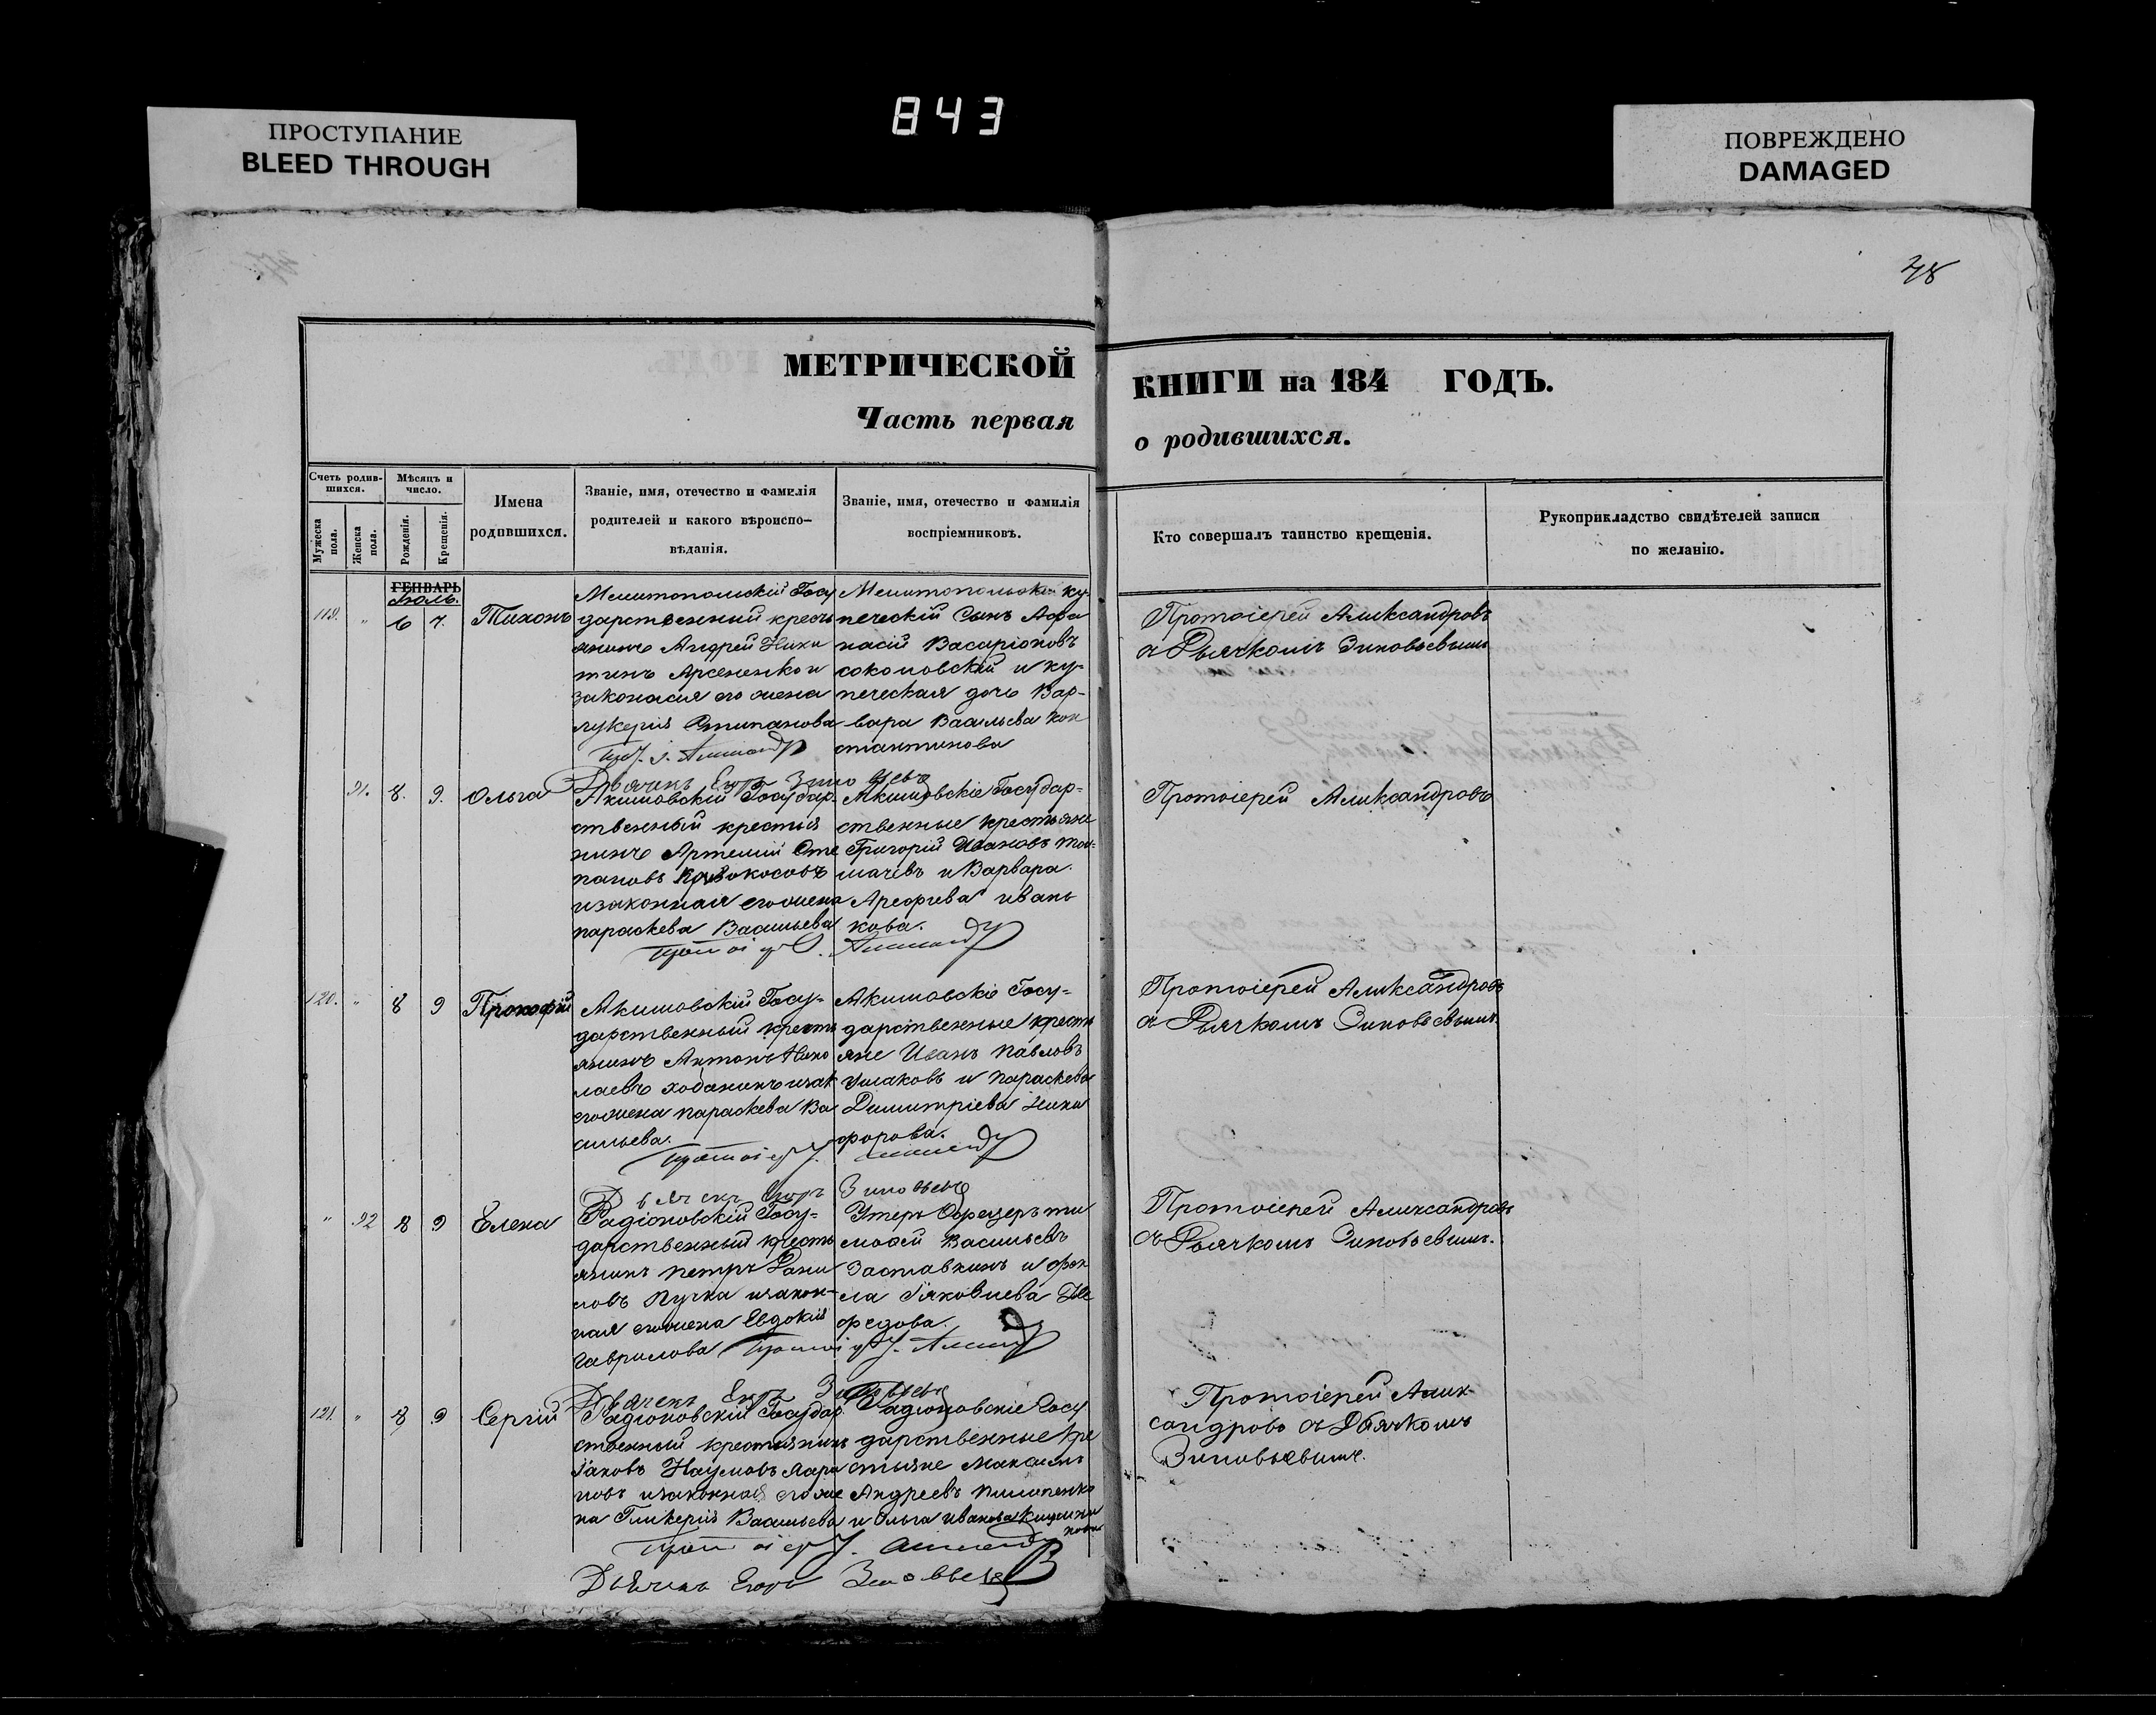 843
ПРОСТУПАНИЕ
BLEED THROUGH
ПОВРЕЖДЕНО
DAMAGED
48
МЕТРИЧЕСКОЙ
КНИГИ на 184 ГОДЪ.
Часть первая
о родившихся.
Счетъ родив-
шихся.
Мужеска
пола.
Женска
пола.
Мѣсяцъ и
число.
Рожденія.
Крещенія.
Имена
родившихся.
Званіе, имя, отечество и фамилія
родителей и какого вѣроиспо-
вѣданія.
Званіе, имя, отечество и фамилія
воспріемниковъ.
Кто совершалъ таинство крещенія.
Рукоприкладство свидѣтелей записи
по желанію.
ГЕНВАРЬ
Июль.
119. " 6 7. Тихонъ
Мелитопольскій Госу
дарственный кресть
янинъ Андрей Ники
тинъ Арсененко и
законная его жена
лукерія Степанова
Мелитопольскій ку-
печескій Сынъ Афа
насій Васаріоновъ
соколовскій и ку-
печеская дочь Вар-
вара Васильева кон
стантинова
Протоіерей Александровъ
съ Дьячкомъ Зиновьевымъ
Дьячекъ Егоръ Зиновьевъ
91. 8. 9. Ольга
Акимовскій Государ-
ственный крестья
нинъ Артемій Сте
пановъ Кривокосовъ
и законная его жена
параскева Васильева
Акимовскіе Государ-
ственные крестьяне
Григорій Ивановъ тол-
мачевъ и Варвара
Иванькова.
Протоіерей Александровъ
120. " 8 9 Прокофій
Акимовскій Госу-
дарственный кресть
янинъ Антонъ Нико
лаевъ ходанинъ и зак
его жена параскева Ва
сильева.
Акимовскіе Госу-
дарственные кресть
яне Иванъ павловъ
Ушаковъ и параскева
Димитріева Ники
форова.
Протоіерей Александровъ
съ Дьячкомъ Зиновьевымъ.
Дьячекъ Егоръ Зиновьевъ
" 92 8 9 Елена
Радіоновскій Госу-
дарственный кресть
янинъ петръ Дани
ловъ Пучка и закон-
ная его жена Евдокія
гаврилова
Унтеръ Офицеръ ти
мофей Васильевъ
Заставкинъ и фек
ла Іяковлева Не
федова.
Протоіерей Александровъ
съ Дьячкомъ Зиновьевымъ.
Дьячекъ Егоръ Зиновьевъ
121. " 8 9 Сергій
Радіоновскій Государ
ственный крестьянинъ
Іаковъ Наумовъ Лари
новъ и законная его же
на Гликерія Васильева
Радіоновскіе Госу
дарственные кре
стьяне Максимъ
Андреевъ пилипенко
и Ольга иванова
Протоіерей Алек-
сандровъ съ Дьячкомъ
Зиновьевымъ.
Дьячекъ Егоръ Зиновьевъ